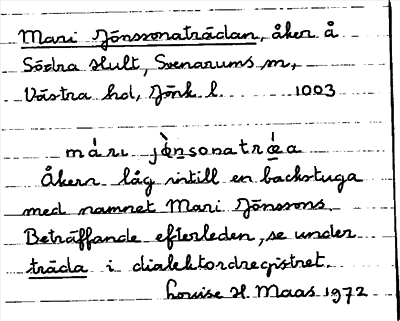 Mari Jönssonaträdan, åker å
Södra Hult, Svenarums sn,
Västra hd, Jönk l. 1003
mári jø̀nsonatrǽa
Åkern låg intill en backstuga
med namnet Mari Jönssons.
Beträffande efterleden, se under
träda i dialektordregistret.
Louise H. Maas 1972